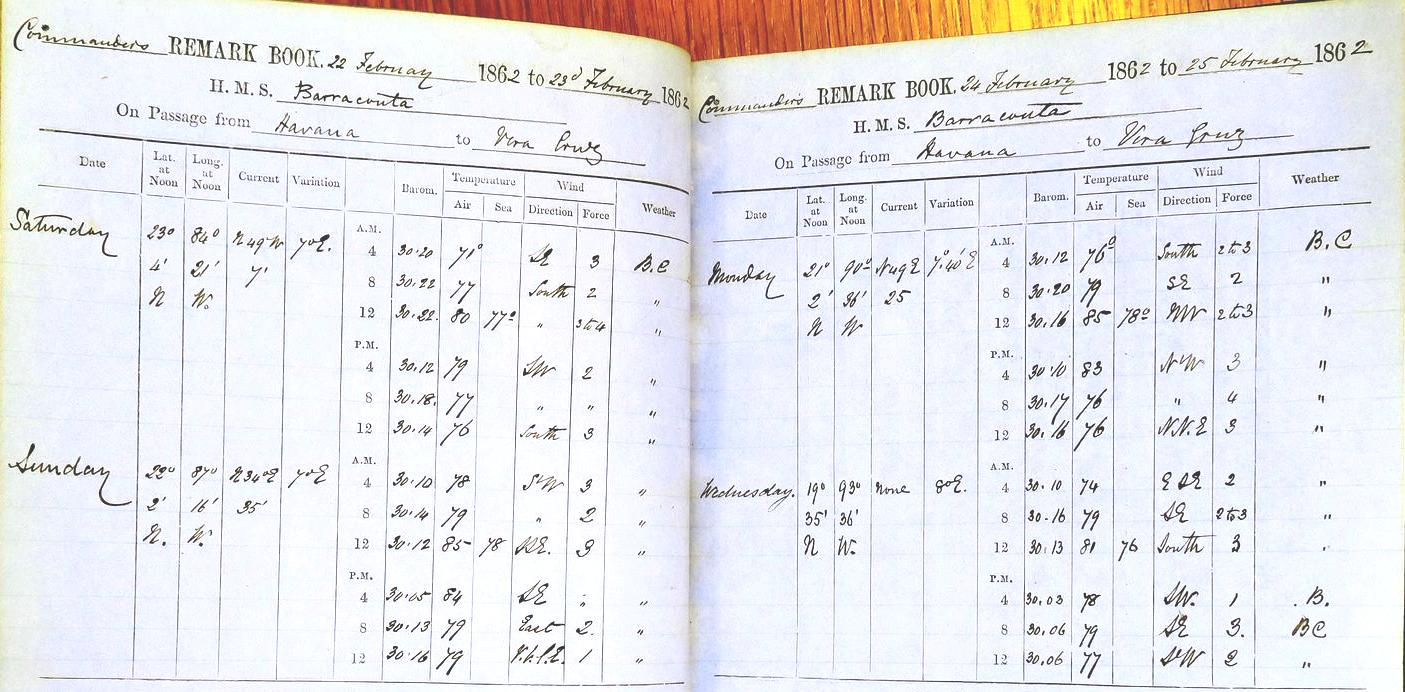 Commanders REMARK BOOK. 22 February 1862 to 23d February 1862
H. M. S. Barracouta
On Passage from Havana to Vera Cruz
Date Lat. at Noon Long. at Noon Current Variation Barom. Temperature Air Sea Wind Direction Force Weather
Saturday 23° 84° N 49 W 7°E. A.M.
4 30.20 71° SE 3 B.C
4' 21' 7' 8 30.22 77 South 2 "
N W. 12 30.22. 80 77° " 3 to 4 "
P.M.
4 30.12 79 SW 2 "
8 30.18. 77 " " "
12 30.14 76 South 3 "
Sunday 22° 87° N34°E 7°E A.M.
4 30.10 78 SW 3 "
2' 16' 35' 8 30.14 79 " 2 "
N. W. 12 30.12 85 78 3 "
P.M.
4 30.05 84 SE " "
8 30.13 79 East 2. "
12 30.16 79 1 "
Commander's REMARK BOOK. 24 February 1862 to 25 February 1862
H. M. S. Barracouta
On Passage from Havana to Vera Cruz
Date Lat. at Noon Long. at Noon Current Variation Barom. Temperature Air Sea Wind Direction Force Weather
Monday 21° 90° N49E 7°.40'E A.M.
4 30.12 76° South 2 to 3 B.C
2' 36' 25 8 30.20 79 SE 2 "
N W 12 30.16 85 78° NW 2 to 3 "
P.M.
4 30.10 83 NW 3 "
8 30.17 76 " 4 "
12 30.16 76 N.N.E 3 "
Wednesday. 19° 93° None 8°E. A.M.
4 30.10 74 E SE 2 "
35' 36' 8 30.16 79 SE 2 to 3 "
N W. 12 30.13 81 76 South 3 "
P.M.
4 30.03 78 SW. 1 B.
8 30.06 79 SE 3. BC
12 30.06 77 SW 2 "